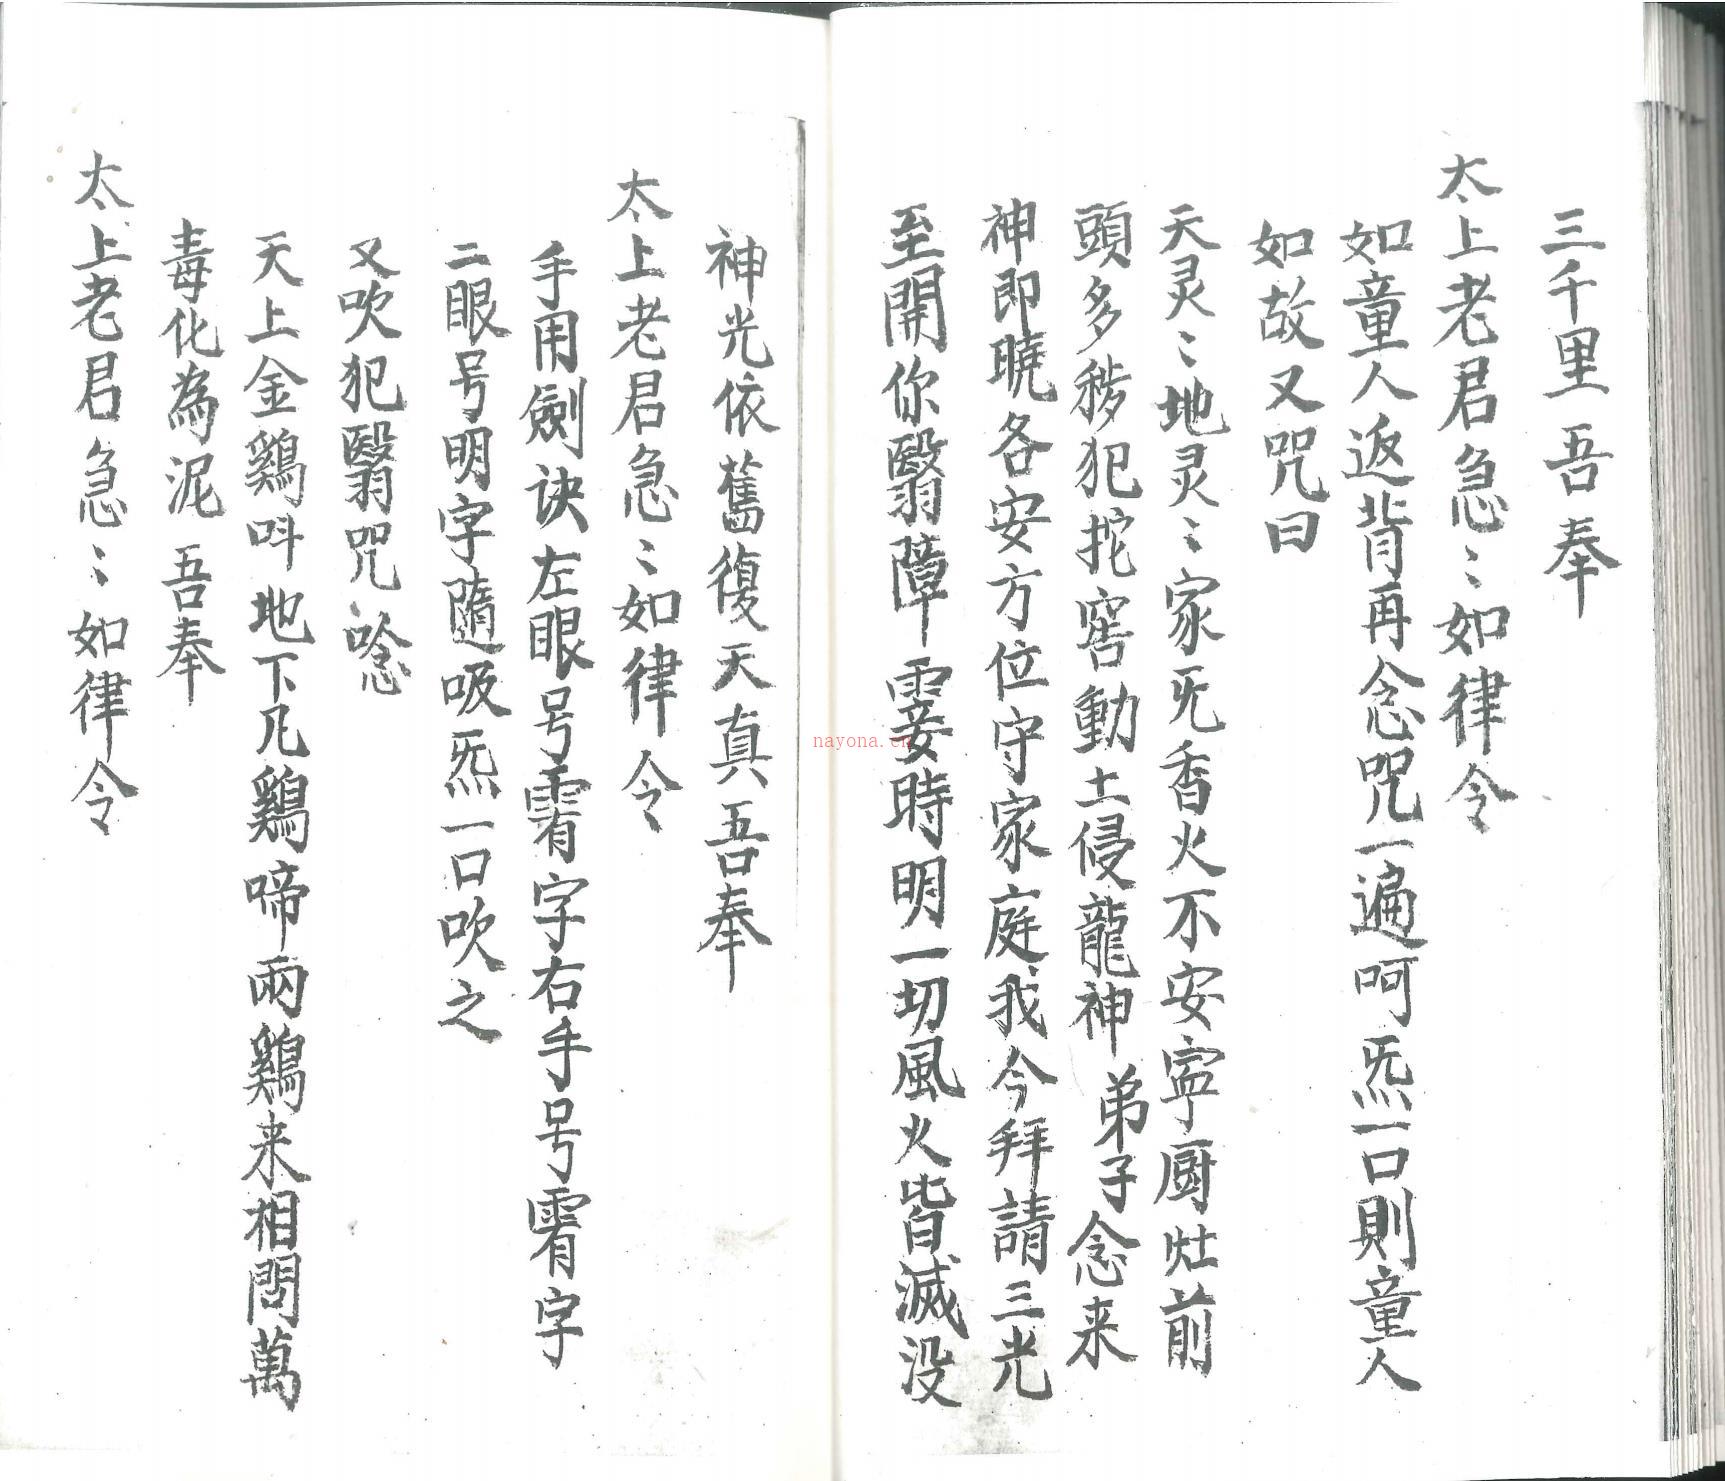 三千里吾奉
太上老君急〻如律令
如童人返背再念咒一遍呵炁一口則童人
如故又咒曰
天灵〻地灵〻家旡香火不安寧厨灶前
頭多秽犯挖窖動土侵龍神弟子念来
神即曉各安方位守家庭我今拜請三光
至開你翳障霎時明一切風火皆滅没
神光依舊復天真吾奉
太上老君急〻如律令
手用劍诀左眼号䨖字右手号䨖字
二眼号明字隨吸炁一口吹之
又吹犯翳咒唸
天上金鷄呌地下凡鷄啼兩鷄来相閗萬
毒化為泥吾奉
太上老君急〻如律令
nayona.cn